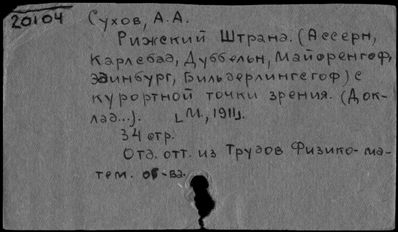 20104 Сухов, А.А.
Рижский Штранд. (Ассерн,
Карлсбад, Дуббельн, Майоренгоф,
Эдинбург, Бильдерлингсгоф) с
курортной точки зрения. (Док-
лад...). [М., 1911].
34 стр.
Отд. отт. из Трудов Физико-ма-
тем. об-ва.